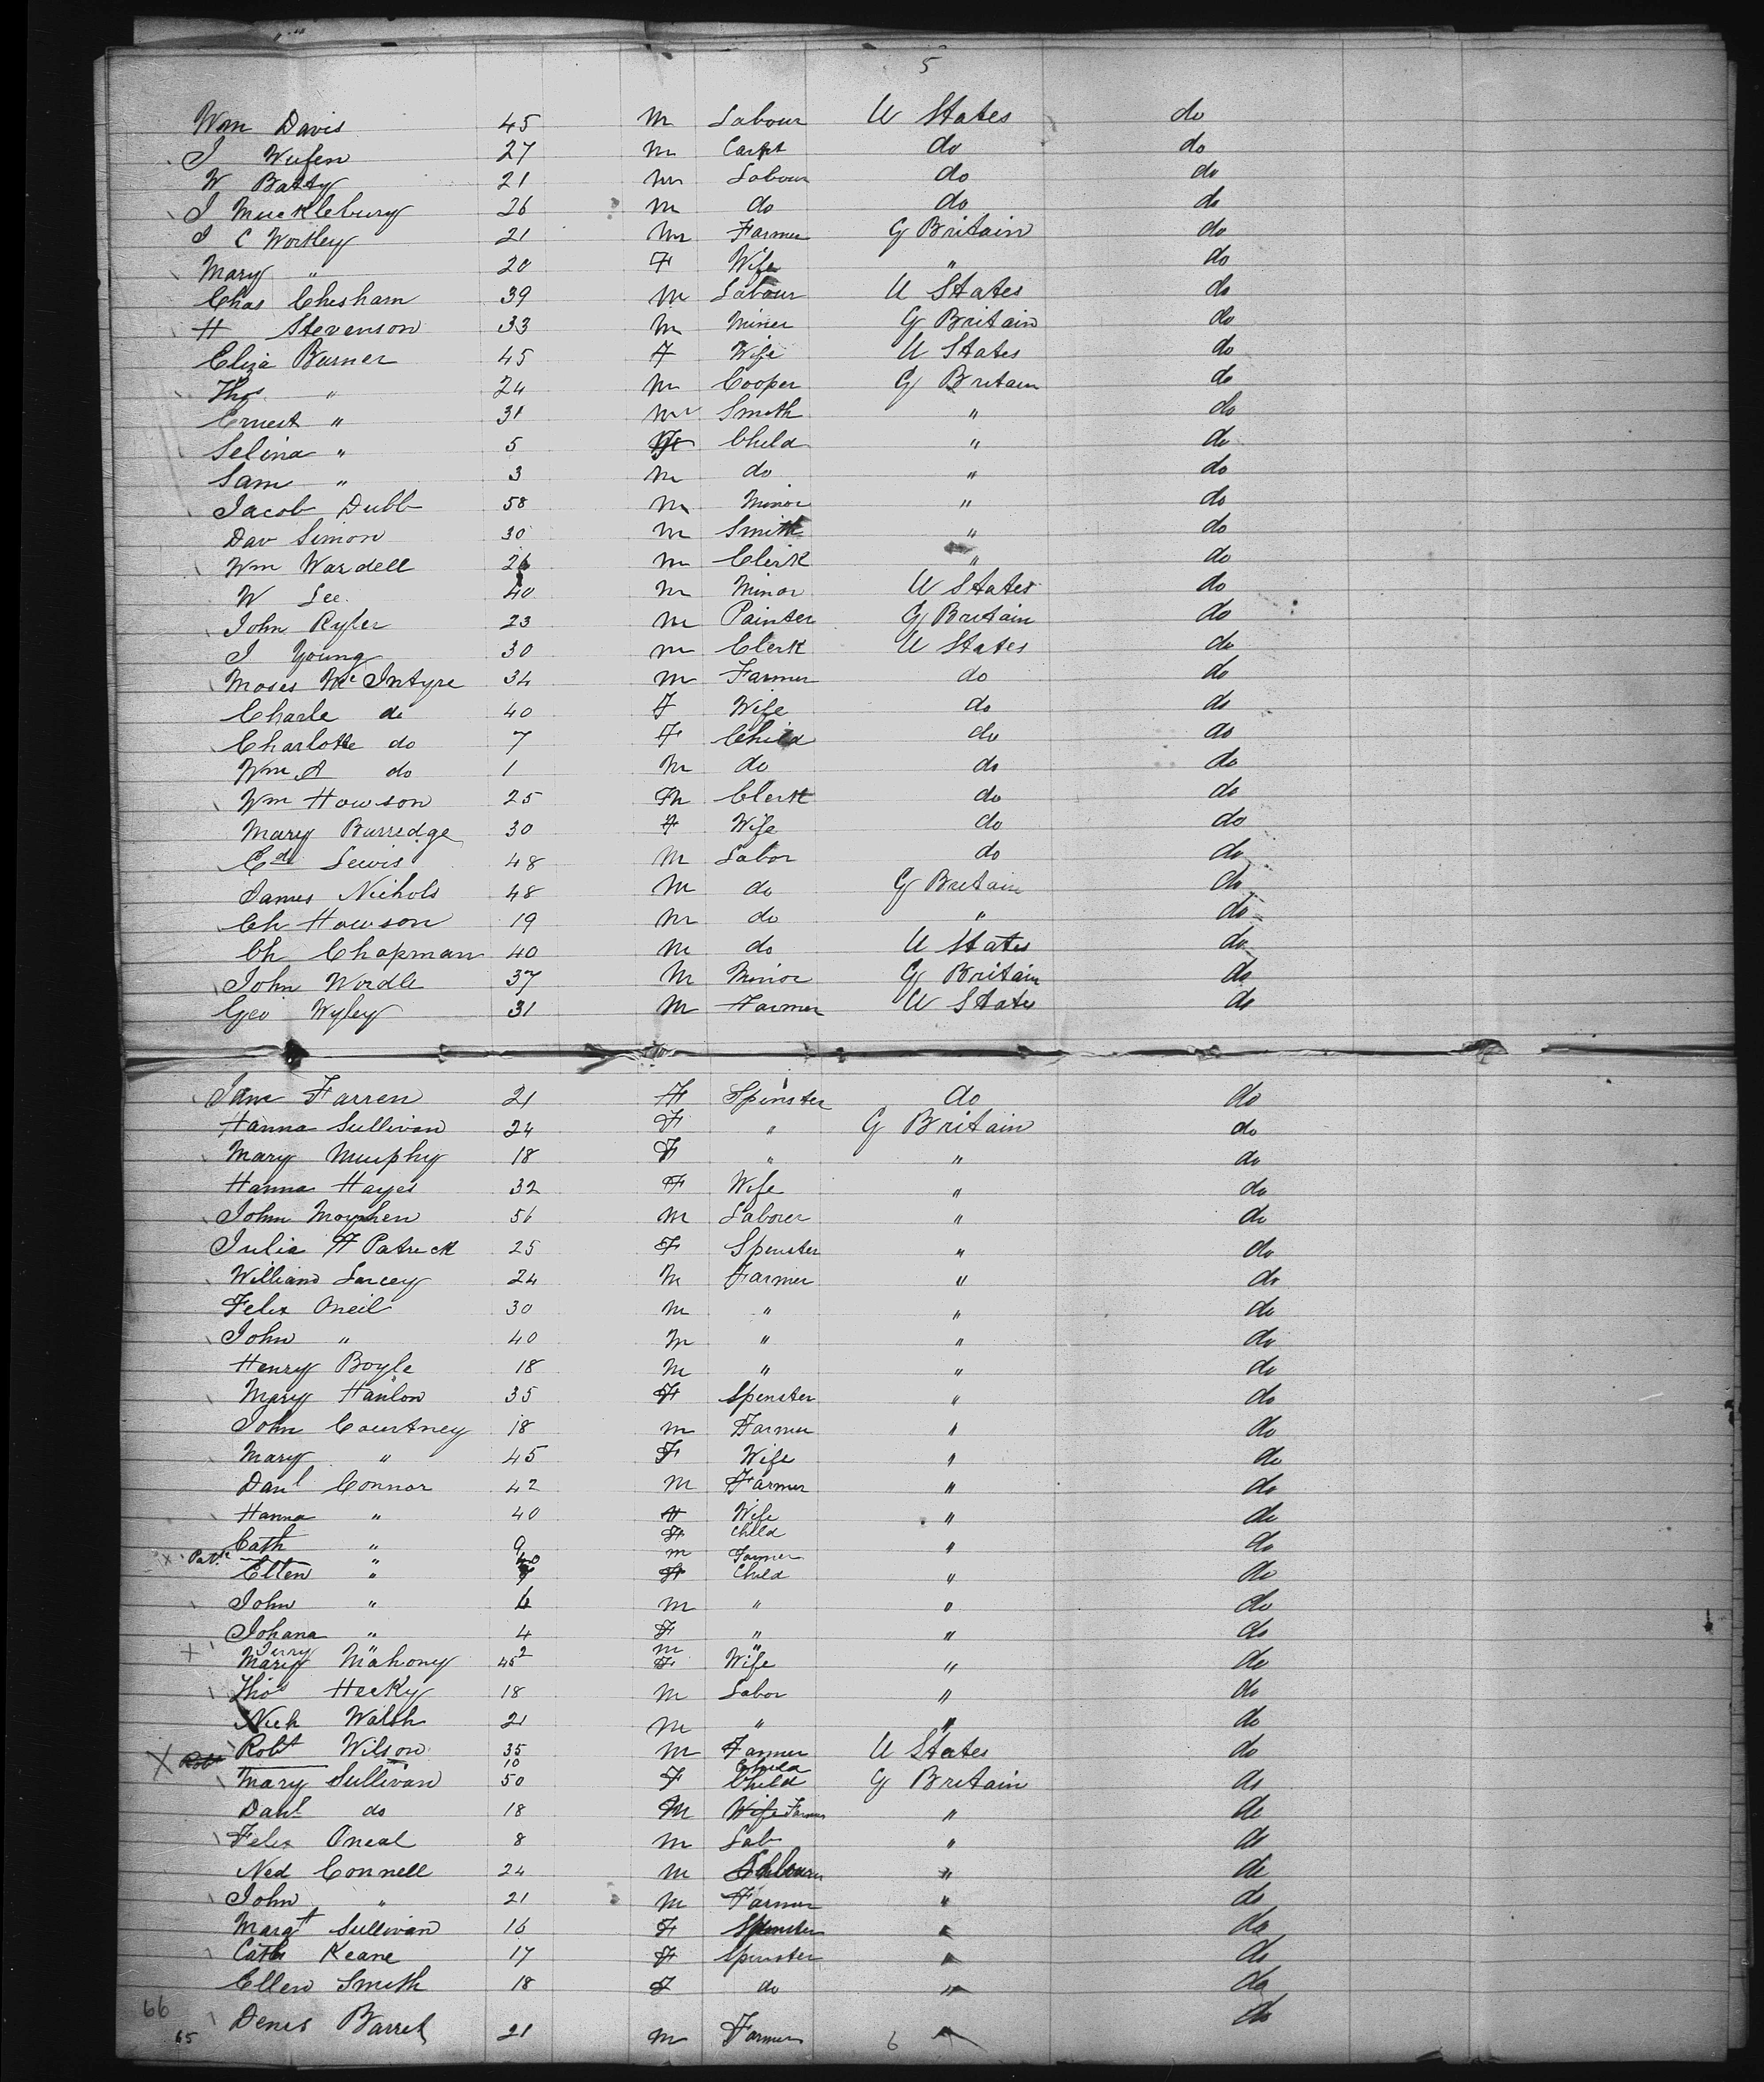 5
Wm Davis 45 M Labour U States do
J Wufen 27 m Carpt do do
W Batty 21 m Labour do do
J Mucklebury 26 m do do do
J C Workley 21 m Farmer G Britain do
Mary " 20 F Wife " do
Chas Chesham 39 m Labour U States do
H Stevenson 33 m Miner G Britain do
Eliza Burner 45 F Wife U States do
Thos " 24 m Cooper G Britain do
Ernest " 31 m Smith " do
Selina " 5 F Child " do
Sam " 3 m do " do
Jacob Dubb 58 m Minor " do
Dav Simon 30 m Smith " do
Wm Wardell 26 m Clerk " do
W Lee 40 m Minor U States do
John Ryler 23 m Painter G Britain do
J Young 30 m Clerk U States do
Moses McIntyre 34 m Farmer do do
Charle do 40 F Wife do do
Charlotte do 7 F Child do do
Wm A do 1 M do do do
Wm Howson 25 M Clerk do do
Mary Burredge 30 F Wife do do
Ed Lewis 48 M Labor do do
James Nichols 48 M do G Britain do
Ch Howson 19 M do " do
Ch Chapman 40 M do U States do
John Wordle 37 M Minor G Britain do
Geo Wyley 31 M Farmer U States do
Jane Farren 21 F Spinster do do
Hanna Sullivan 24 F " G Britain do
Mary Murphy 18 F " " do
Hanna Hayes 32 F Wife " do
John Moyshen 56 M Labourer " do
Julia F Patrick 25 F Spenster " do
William Larcey 24 M Farmer " do
Felix Oneil 30 M " " do
John " 40 M " " do
Henry Boyle 18 M " " do
Mary Hanlon 35 F Spenster " do
John Courtney 18 m Farmer " do
Mary " 45 F Wife " do
Danl Connor 42 M Farmer " do
Hanna " 40 F Wife " do
Cath " 9 F Child " do
x Patk 40 m Farmer
Ellen " F Child " do
John " 6 M " " do
Johana " 4 F " " do
x Jerry " 2 m "
Mary Mahony 45 F Wife " do
Thos Hecky 18 M Labor " do
Nich Walsh 21 M " " do
X Robt Robt Wilson 35 M Farmer U States do
10 Child
Mary Sullivan 50 F Child G Britain do
Danl do 18 M Wife Farmer " do
Felix Oneal 8 M Lab " do
Ned Connell 24 M " do
John " 21 M Farmer " do
Margt Sullivan 16 F Spenster " do
Cath Keane 17 F Spenster " do
Ellen Smith 18 F do " do
66
Denis Barret 21 m Farmer " do
65 6